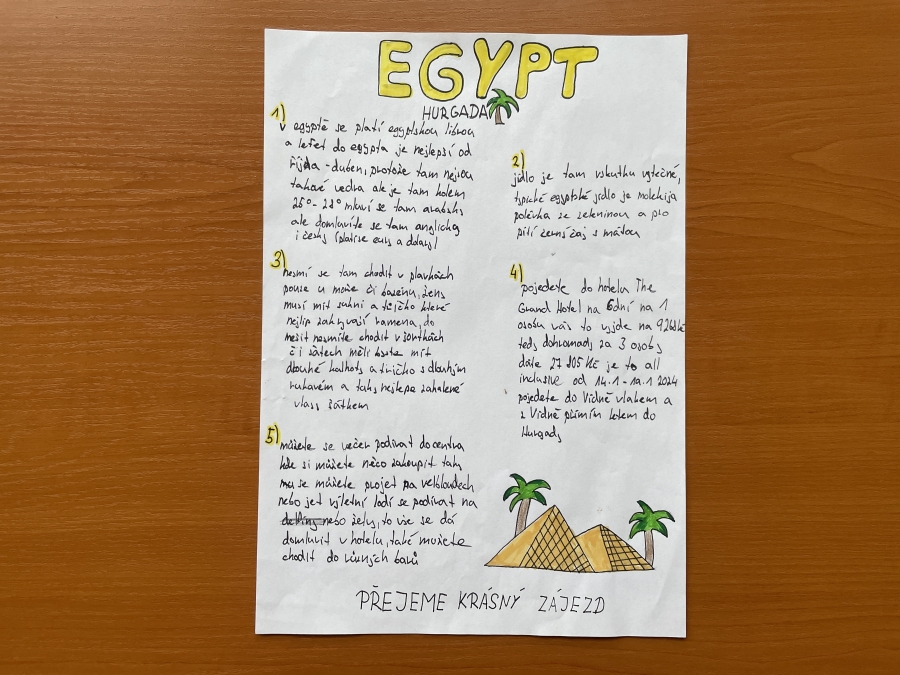 EGYPT
HURGADA
1)
v egyptě se platí egyptskou librou
a letět do egypta je nejlepší od
října - duben, protože tam nejsou
takové vedra ale je tam kolem
25° - 28° mluví se tam arabsky
ale domluvíte se tam anglicky
i česky (platíse eury a dolary)
2)
jídlo je tam vskutku výtečné,
typické egyptské jídlo je molekija
polévka se zeleninou a pro
pití černý čaj s mátou
3)
nesmí se tam chodit v plavkách
pouze u moře či bazénu, ženy
musí mít sukni a tričko které
nejlíp zakrývají ramena, do
mešit nesmíte chodit v šortkách
či šatech měli byste mít
dlouhé kalhoty a tričko s dlouhým
rukávem a taky nejlépe zahalené
vlasy šátkem
4)
pojedete do hotelu The
Grand Hotel na 6dní na 1
osobu vás to vyjde na 9268kč
tedy dohromady za 3 osoby
dáte 27 805 Kč je to all
inclusive od 14.1 - 19.1 2024
pojedete do Vídně vlakem a
z Vídně přímím letem do
Hurgady
5)
můžete se večer podívat do centra
kde si můžete něco zakoupit taky
se můžete projet na velbloudech
nebo jet výletní lodí se podívat na
nebo želvy, to vše se dá
domluvit v hotelu, také mužete
chodit do různých barů
PŘEJEME KRÁSNÝ ZÁJEZD